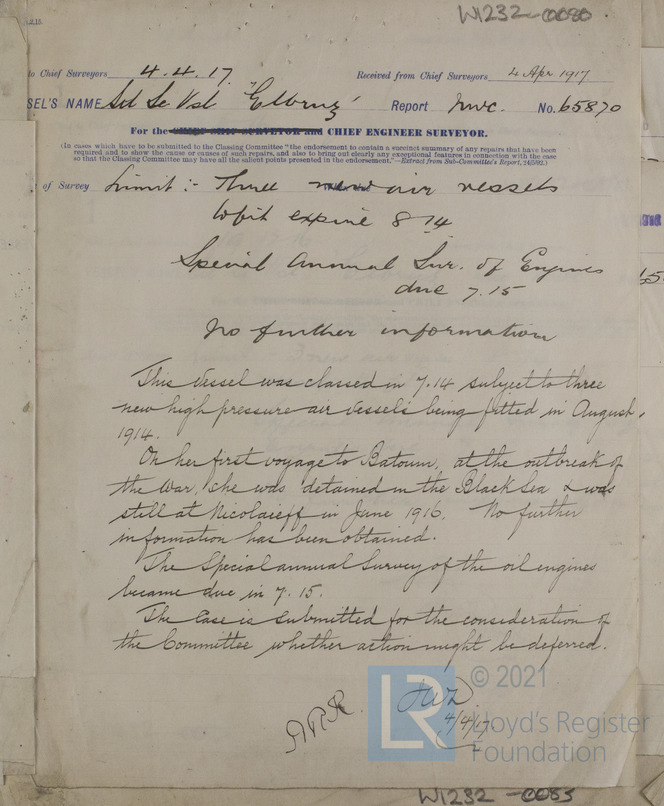 W1232-0080
to Chief Surveyors 4.4.17. Received from Chief Surveyors 4 Apr 1917
SEL'S NAME Sd Sc Vsl "Elbruz" Report Nwc. No. 65870
For the CHIEF SHIP SURVEYOR and CHIEF ENGINEER SURVEYOR.
(In cases which have to be submitted to the Classing Committee "the endorsement to contain a succinct summary of any repairs that have been
required and to show the cause or causes of such repairs, and also to bring out clearly any exceptional features in connection with the case
so that the Classing Committee may have all the salient points presented in the endorsement."—Extract from Sub-Committee's Report, 24/5/92.)
of Survey Limit :- Three new air vessels
to be fit expire 8 14
Special Annual Sur. of Engines
due 7.15
No further information
This Vessel was classed in 7.14 subject to three
new high pressure air vessels being fitted in August,
1914.
On her first voyage to Batoum, at the outbreak of
the War, she was detained in the Black Sea & was
still at Nicolaieff in June 1916. No further
information has been obtained.
The Special annual Survey of the oil engines
became due in 7.15.
The Case is submitted for the consideration of
the Committee whether action might be deferred.
4/4/17
LR
© 2021
Lloyd's Register
Foundation
W1232-0083